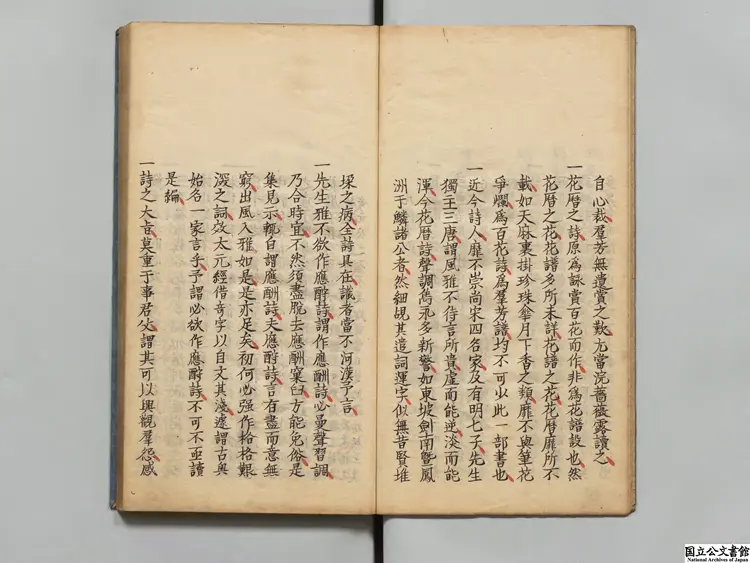 自心裁羣芳無遺賞之歎尤當浣薔薇露讀之
一花曆之詩原為詠賞百花而作非為花譜設也然
花曆之花花譜多所未詳花譜之花花曆靡所不
載如天麻裹掛珍珠傘月下香之類靡不與筆花
爭爛為百花詩為羣芳譜均不可少此一部書也
一近今詩人靡不崇尚宋四名家及有明七子先生
獨主三唐謂風雅不待言所貴虛而能逆淡而能
渾今花曆詩聲調高亢多新警如東坡劍南暨鳳
洲于鱗諸公者然細覘其遣詞運字似無昔賢堆
垛之病全詩具在識者當不河漢予言
一先生雅不欲作應酧詩謂作應酬詩必曼聲習調
乃合時宜不然須盡脫去應酬窠臼方能免俗是
集見示輒自謂應酬詩夫應酧詩言有盡而意無
窮出風入雅如是是亦足矣初何必强作枯格艱
澁之詞效太元經借奇字以自文其淺遽謂古奧
始名一家言乎予謂必欲作應酧詩不可不亟讀
是編
一詩之大旨莫重于事君父謂其可以興觀羣怨感
国立公文書館
National Archives of Japan